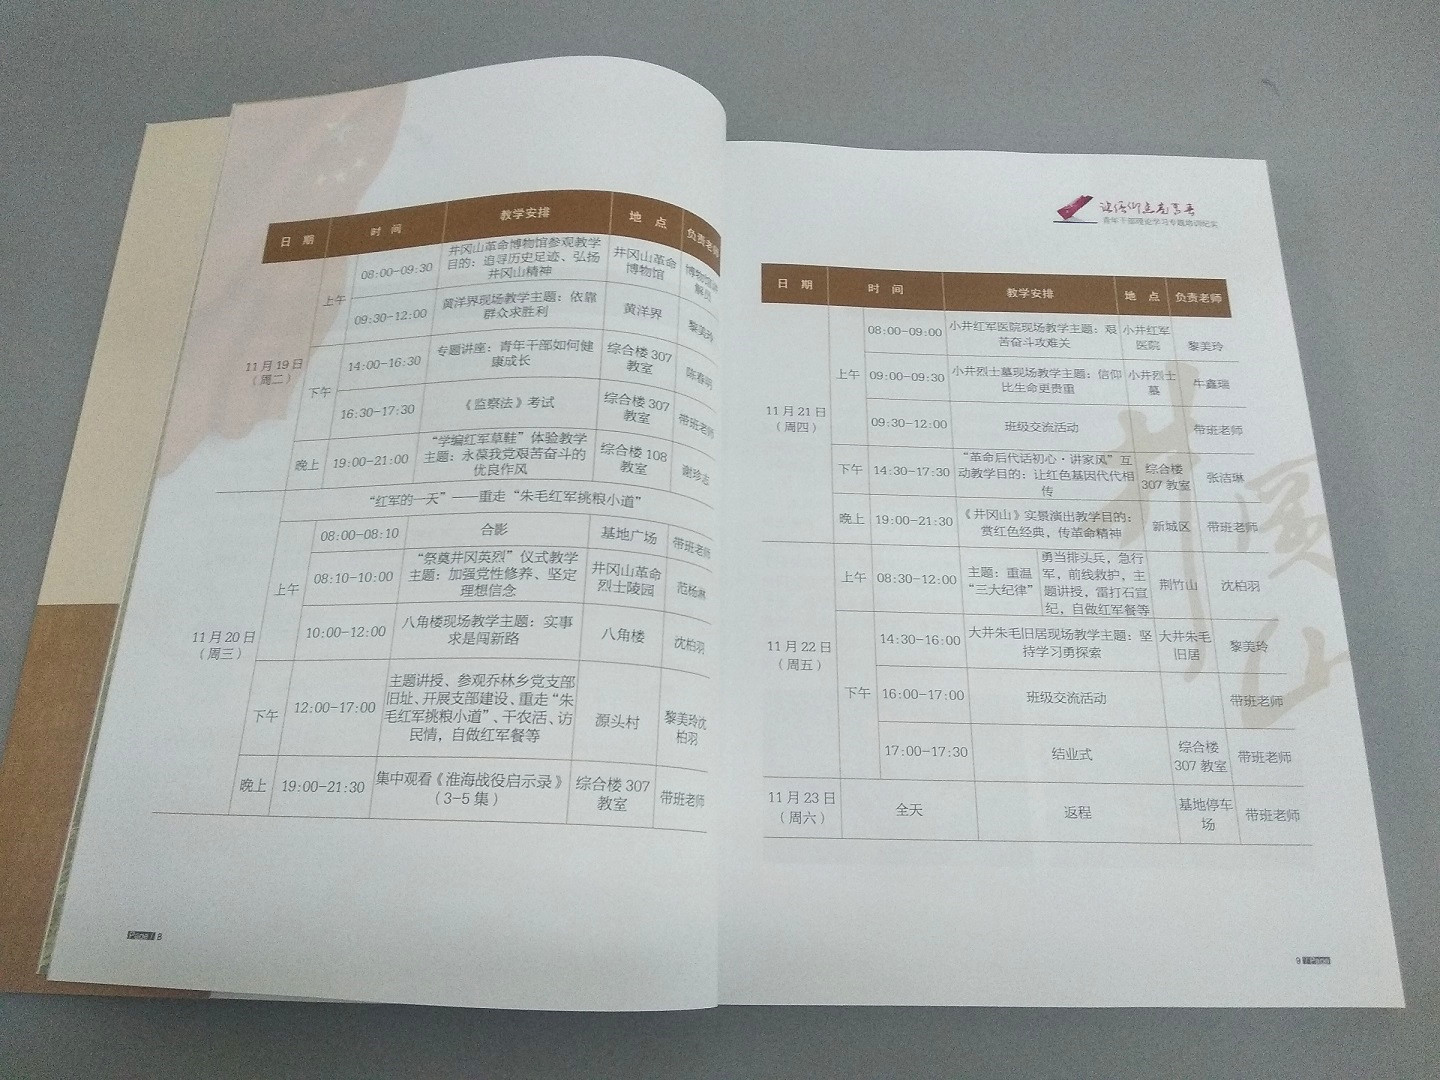 日 期
时 间
教学安排
地 点
负责老师
11月19日
（周二）
上午
08:00-09:30
井冈山革命博物馆参观教学
目的：追寻历史足迹、弘扬
井冈山精神
井冈山革命
博物馆
解员
09:30-12:00
黄洋界现场教学主题：依靠
群众求胜利
黄洋界
黎美玲
下午
14:00-16:30
专题讲座：青年干部如何健
康成长
综合楼307
教室
陈春明
16:30-17:30
《监察法》考试
综合楼307
教室
带班老师
晚上
19:00-21:00
“学编红军草鞋”体验教学
主题：永葆我党艰苦奋斗的
优良作风
综合楼108
教室
谢珍志
“红军的一天”——重走“朱毛红军挑粮小道”
11月20日
（周三）
上午
08:00-08:10
合影
基地广场
带班老师
08:10-10:00
“祭奠井冈英烈”仪式教学
主题：加强党性修养、坚定
理想信念
井冈山革命
烈士陵园
范杨淋
10:00-12:00
八角楼现场教学主题：实事
求是闯新路
八角楼
沈柏羽
下午
12:00-17:00
主题讲授、参观乔林乡党支部
旧址、开展支部建设、重走“朱
毛红军挑粮小道”、干农活、访
民情，自做红军餐等
源头村
黎美玲沈
柏羽
晚上
19:00-21:30
集中观看《淮海战役启示录》
（3-5集）
综合楼307
教室
带班老师
Page / 8
青年干部理论学习专题培训纪实
日 期
时 间
教学安排
地 点
负责老师
11月21日
（周四）
上午
08:00-09:00
小井红军医院现场教学主题：艰
苦奋斗攻难关
小井红军
医院
黎美玲
09:00-09:30
小井烈士墓现场教学主题：信仰
比生命更贵重
小井烈士
墓
牛鑫瑞
09:30-12:00
班级交流活动
带班老师
下午
14:30-17:30
“革命后代话初心·讲家风”互
动教学目的：让红色基因代代相
传
综合楼
307教室
张洁琳
晚上
19:00-21:30
《井冈山》实景演出教学目的：
赏红色经典，传革命精神
新城区
带班老师
11月22日
（周五）
上午
08:30-12:00
主题：重温
“三大纪律”
勇当排头兵，急行
军，前线救护，主
题讲授，雷打石宣
纪，自做红军餐等
荆竹山
沈柏羽
下午
14:30-16:00
大井朱毛旧居现场教学主题：坚
持学习勇探索
大井朱毛
旧居
黎美玲
16:00-17:00
班级交流活动
带班老师
17:00-17:30
结业式
综合楼
307教室
带班老师
11月23日
（周六）
全天
返程
基地停车
场
带班老师
井
冈
山
9 / Page